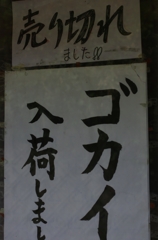 売り切れ
ました
ゴカイ
入荷しまし